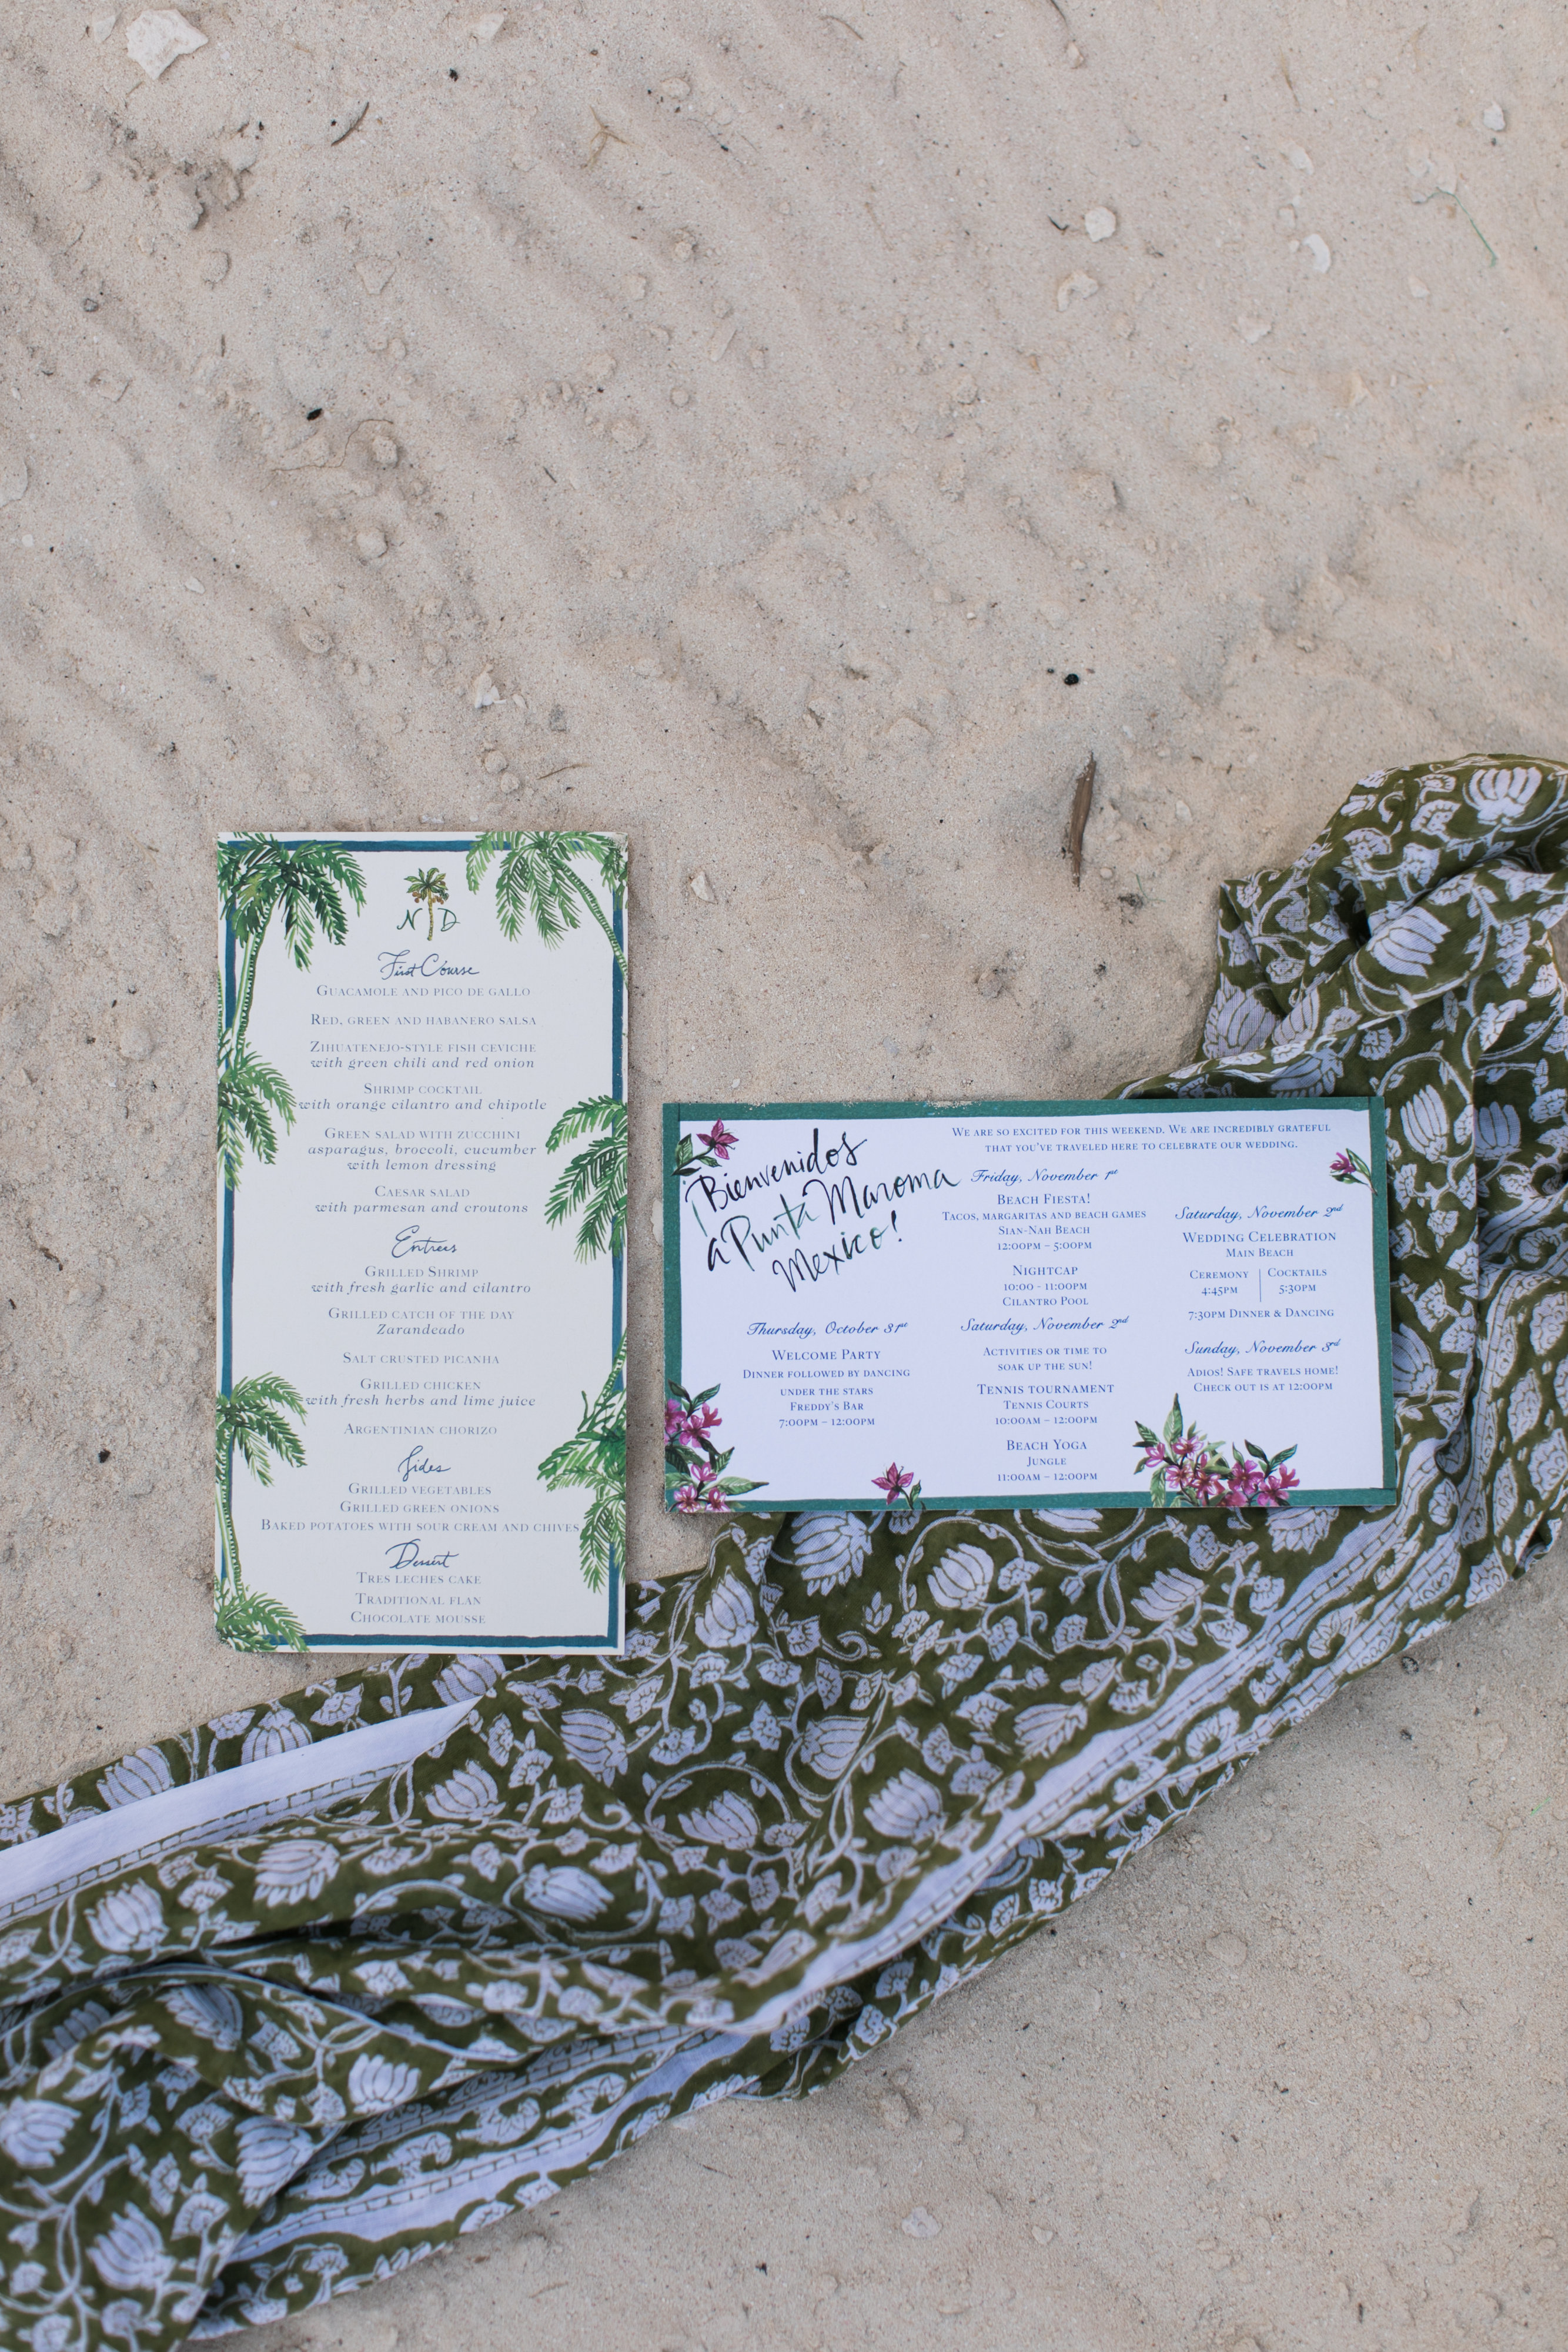 N D
First Course
GUACAMOLE AND PICO DE GALLO
RED, GREEN AND HABANERO SALSA
ZIHUATENEJO-STYLE FISH CEVICHE
with green chili and red onion
SHRIMP COCKTAIL
with orange cilantro and chipotle
GREEN SALAD WITH ZUCCHINI
asparagus, broccoli, cucumber
with lemon dressing
CAESAR SALAD
with parmesan and croutons
Entrees
GRILLED SHRIMP
with fresh garlic and cilantro
GRILLED CATCH OF THE DAY
Zarandeado
SALT CRUSTED PICANHA
GRILLED CHICKEN
with fresh herbs and lime juice
ARGENTINIAN CHORIZO
Sides
GRILLED VEGETABLES
GRILLED GREEN ONIONS
BAKED POTATOES WITH SOUR CREAM AND CHIVES
Dessert
TRES LECHES CAKE
TRADITIONAL FLAN
CHOCOLATE MOUSSE
¡Bienvenidos
a Punta Maroma
Mexico!
WE ARE SO EXCITED FOR THIS WEEKEND. WE ARE INCREDIBLY GRATEFUL
THAT YOU'VE TRAVELED HERE TO CELEBRATE OUR WEDDING.
Thursday, October 31st
WELCOME PARTY
DINNER FOLLOWED BY DANCING
UNDER THE STARS
FREDDY'S BAR
7:00PM – 12:00PM
Friday, November 1st
BEACH FIESTA!
TACOS, MARGARITAS AND BEACH GAMES
SIAN-NAH BEACH
12:00PM – 5:00PM
NIGHTCAP
10:00 - 11:00PM
CILANTRO POOL
Saturday, November 2nd
ACTIVITIES OR TIME TO
SOAK UP THE SUN!
TENNIS TOURNAMENT
TENNIS COURTS
10:00AM – 12:00PM
BEACH YOGA
JUNGLE
11:00AM – 12:00PM
Saturday, November 2nd
WEDDING CELEBRATION
MAIN BEACH
CEREMONY COCKTAILS
4:45PM 5:30PM
7:30PM DINNER & DANCING
Sunday, November 3rd
ADIOS! SAFE TRAVELS HOME!
CHECK OUT IS AT 12:00PM